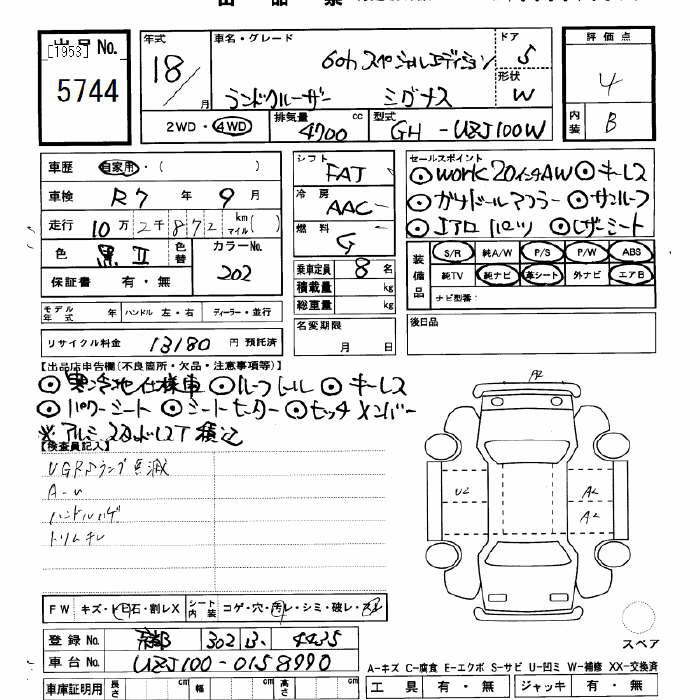 出品票
出品No. 年式 車名・グレード ドア 評価点
[1953] 5744 18/ 月 60th スペシャルエディション 5 4
ランドクルーザー シグナス 形状 W 内装 B
2WD・4WD 排気量 4700 cc 型式 GH-UZJ100W
車歴 自家用・( ) シフト FAT セールスポイント
車検 R7 年 9 月 冷房 AAC ◎work 20インチAW ◎キーレス
走行 10万2千872 km マイル( ) 燃料 G ◎ガナドールマフラー ◎サンルーフ
◎エアロ ◎レザーシート
色 黒Ⅱ 色替 カラーNo. 202
保証書 有・無
乗車定員 8 名 装備品 S/R 純A/W P/S P/W ABS
積載量 kg 純TV 純ナビ 革シート 外ナビ エアB
総重量 kg ナビ型番:
モデル年式 年 ハンドル 左・右 ディーラー・並行
名変期限 月 日 後日品
リサイクル料金 13180 円 預託済
【出品店申告欄(不良箇所・欠品・注意事項等)】
◎寒冷地仕様車 ◎ルーフレール ◎キーレス
◎パワーシート ◎シートヒーター ◎セッチメンバー
※アルミ
【検査員記入】
VGRSランプ点滅
A-U
ハンドルハゲ
トリムキレ
A2
U2 A2
A2
FW キズ・トビ石・割レX シート内装 コゲ・穴・汚レ・シミ・破レ・
スペア
登録No. 京都 302 4435
車台No. UZJ100-0158990
A-キズ C-腐食 E-エクボ S-サビ U-凹ミ W-補修 XX-交換済
車庫証明用 長さ cm 幅 cm 高さ cm 工具 有・無 ジャッキ 有・無